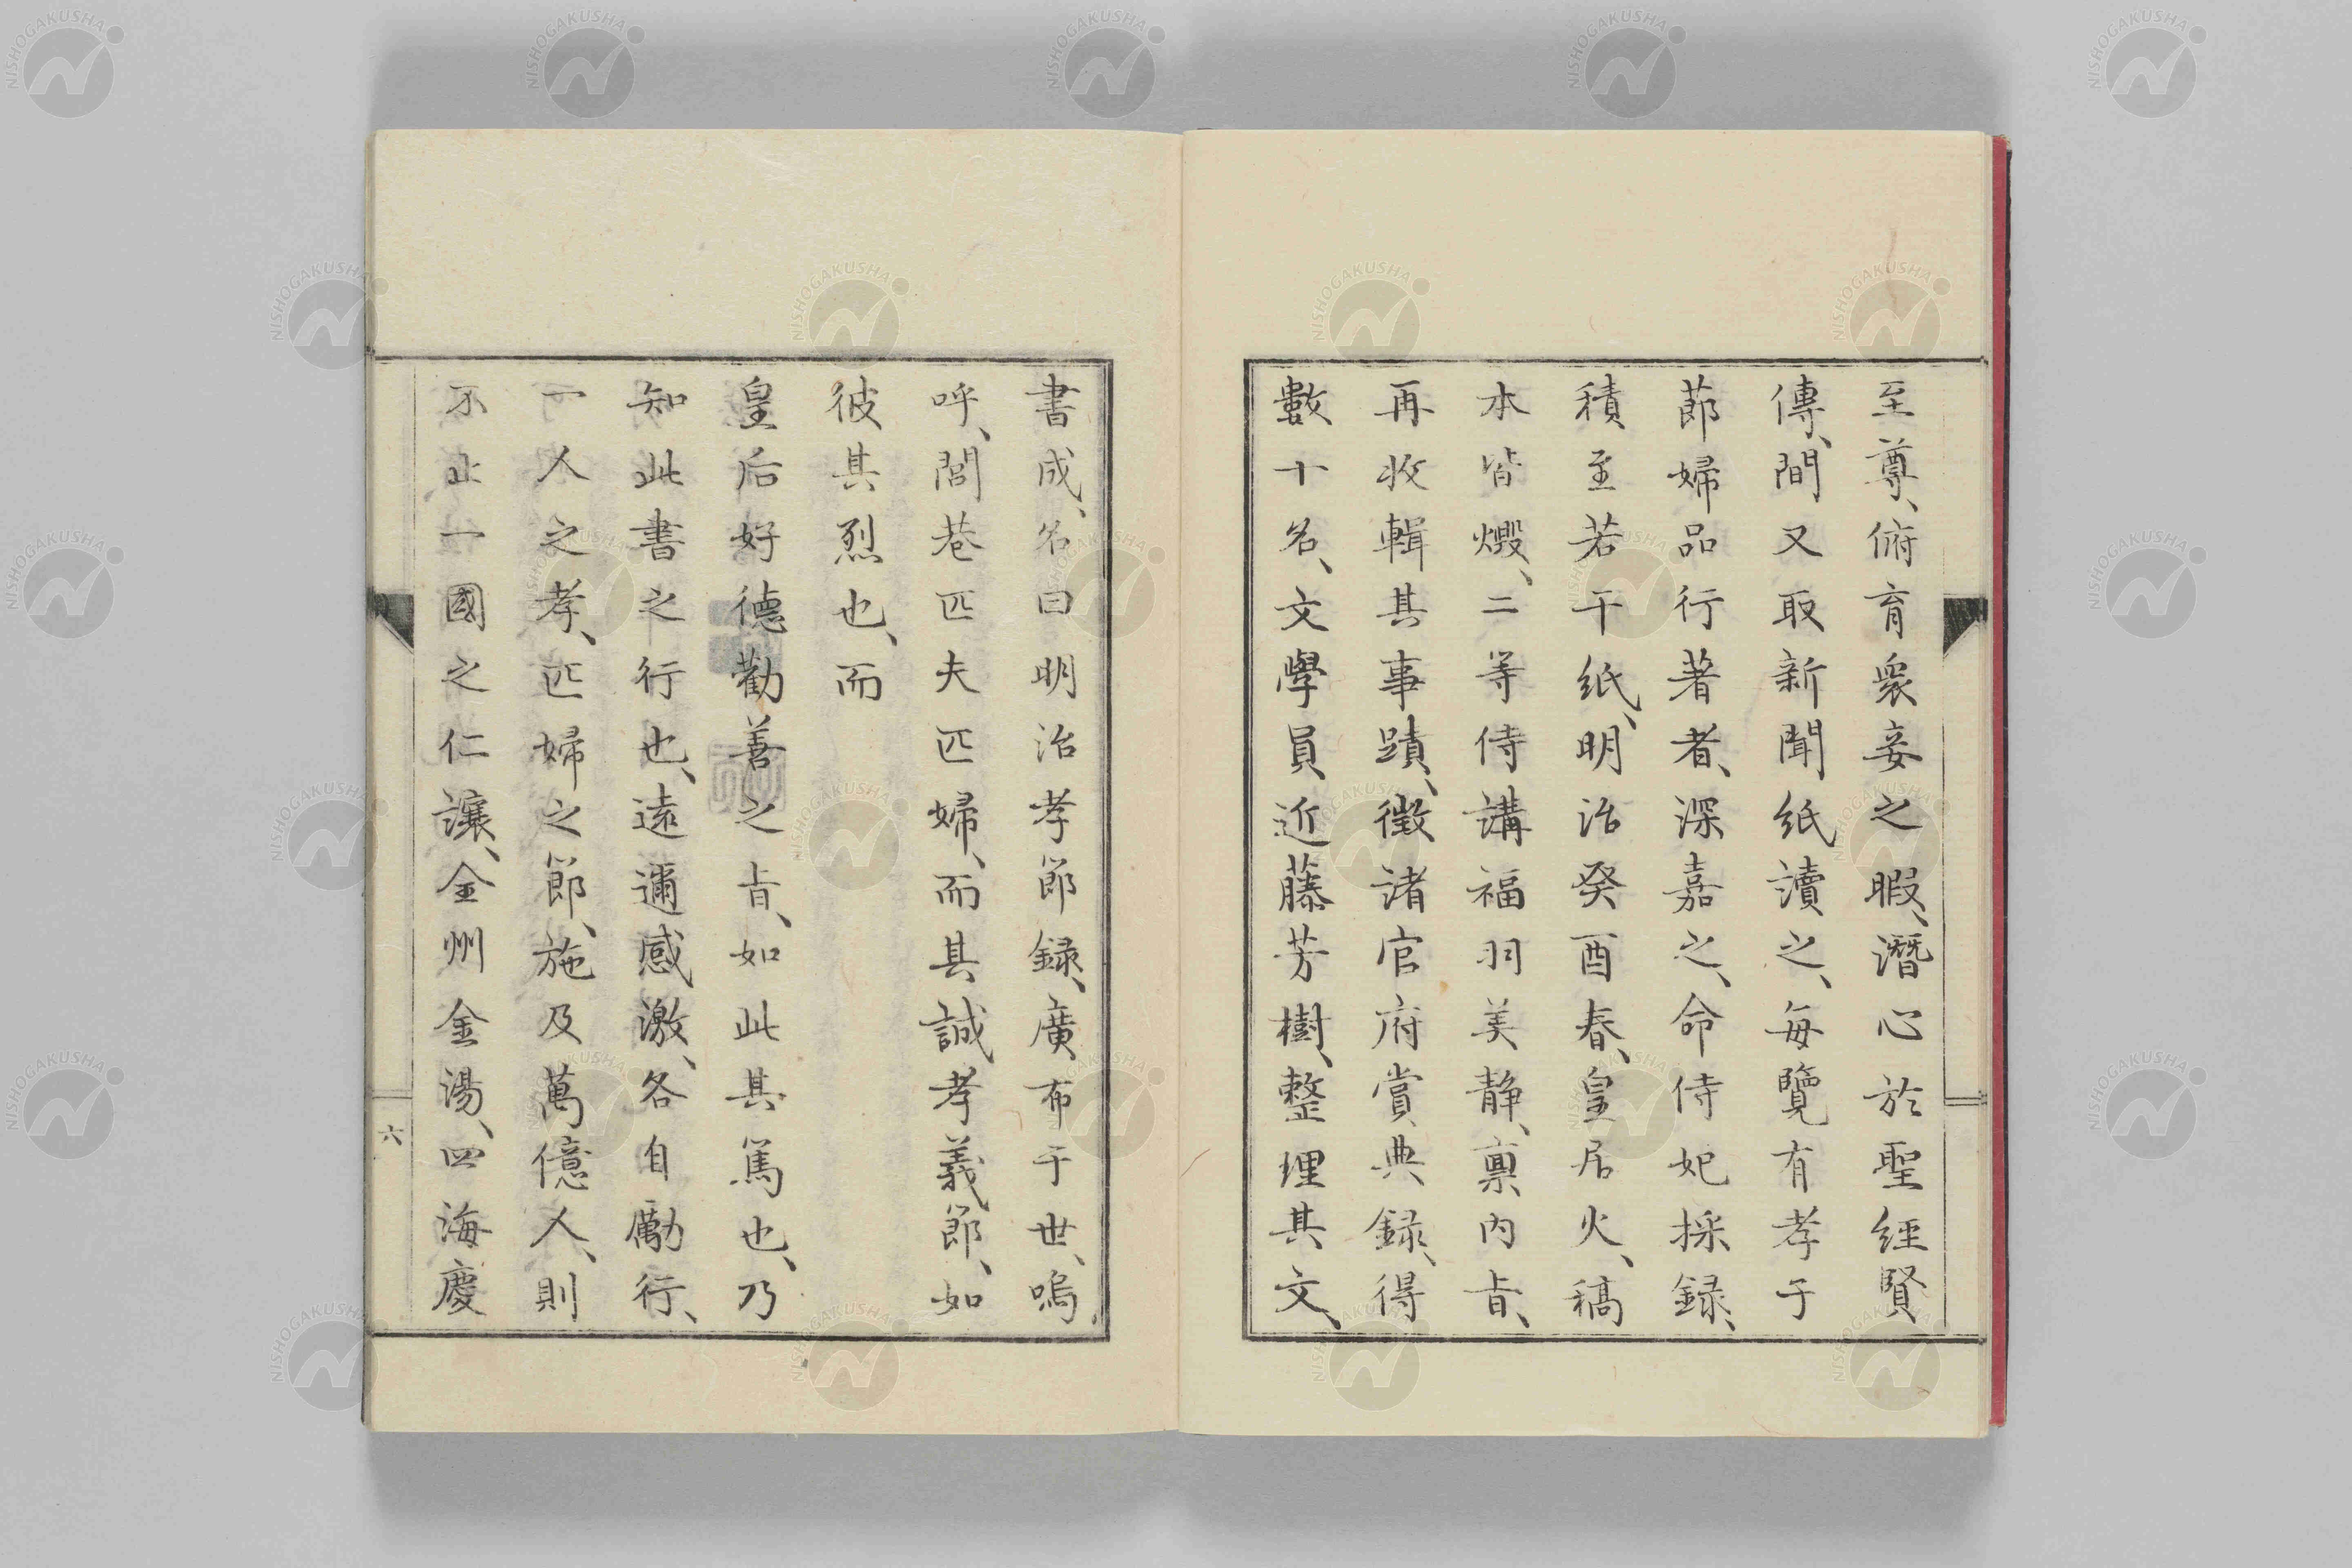 至尊、俯育衆妾之暇、潛心於聖經賢
傳、間又取新聞紙讀之、每覽有孝子
節婦品行著者、深嘉之、命侍妃採録、
積至若干紙、明治癸酉春、皇居火、稿
本皆燬、二等侍講福羽美静、稟內旨、
再收輯其事蹟、徵諸官府賞典録、得
數十名、文學員近藤芳樹、整理其文、
書成、名曰明治孝節録、廣布于世、嗚
呼、閭巷匹夫匹婦、而其誠孝義節、如
彼其烈也、而
皇后好德勸善之旨、如此其篤也、乃
知此書之行也、遠邇感激、各自勵行、
一人之孝、匹婦之節、施及萬億人、則
不止一國之仁讓、全州金湯、四海慶
六
NISHOGAKUSHA